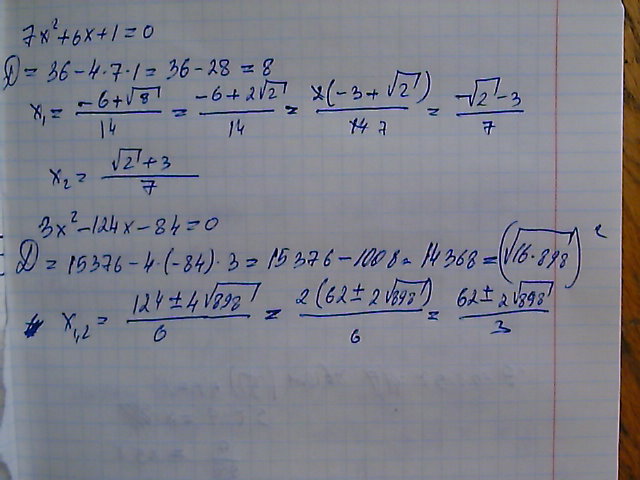 7x²+6x+1=0
D = 36-4·7·1 = 36-28 = 8
x₁ = (-6+√8)/14 = (-6+2√2)/14 = 2(-3+√2)/14 7 = (-√2-3)/7
x₂ = (√2+3)/7
3x²-124x-84=0
D = 15376-4·(-84)·3 = 15376-1008 = 14368 = (√16·898)²
x₁,₂ = (124±4√898)/6 = 2(62±2√898)/6 = (62±2√898)/3